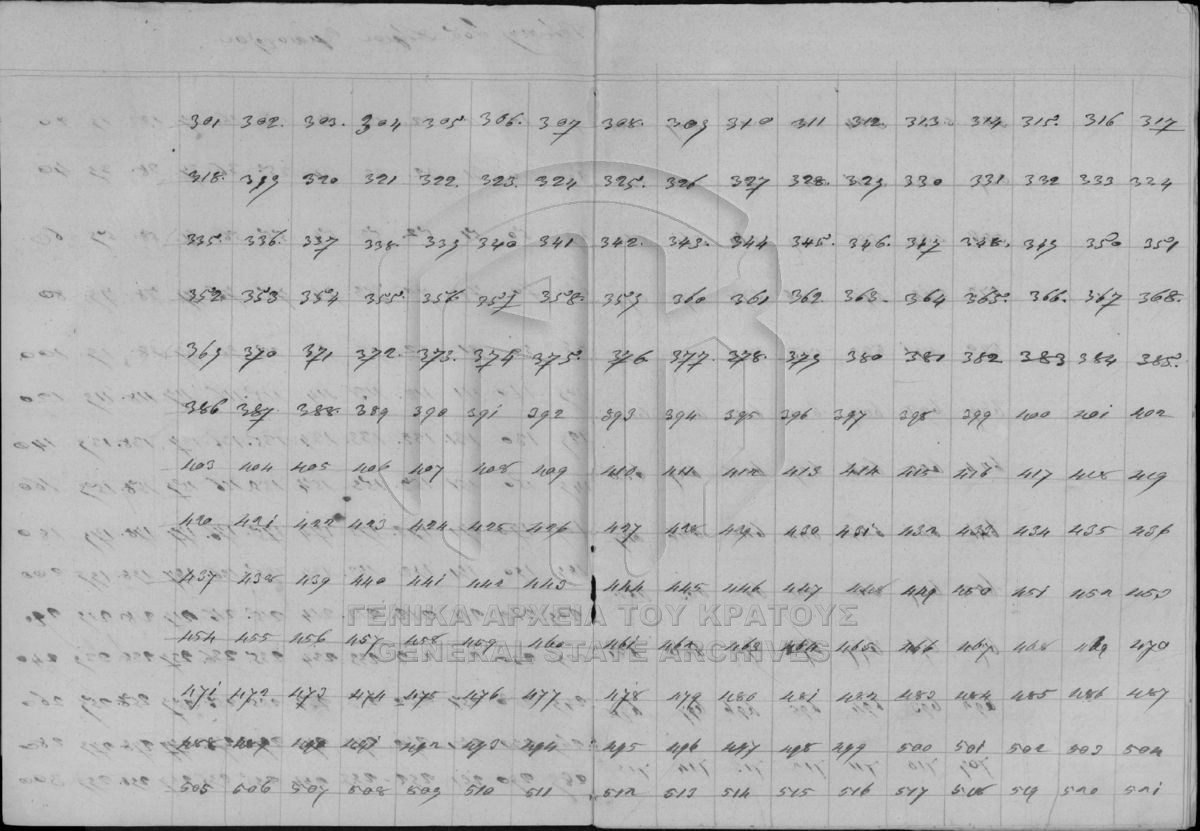 301 302. 303. 304 305 306. 307 308. 309 310 311 312 313 314 315 316 317
318. 319 320 321 322. 323. 324 325. 326 327 328. 329 330 331 332 333 324
335. 336. 337 338. 339 340 341 342. 343. 344 345. 346. 347 348. 349 350 351
352 353 354 355. 356. 357 358. 359 360 361 362 363. 364 365 366. 367 368.
369 370 371 372. 373. 374 375. 376 377. 378. 379 380 381 382 383 384 385.
386 387. 388. 389 390 391 392 393 394 395 396 397 398 399 400 401 402
403 404 405 406 407 408 409 410 411 412 413 414 415 416 417 418 419
420 421 422 423 424 425 426 427 428 429 430 431 432 433 434 435 436
437 438 439 440 441 442 443 444 445 446 447 448 449 450 451 452 453
ΓΕΝΙΚΑ ΑΡΧΕΙΑ ΤΟΥ ΚΡΑΤΟΥΣ
454 455 456 457 458 459 460 461 462 463 464 465 466 467 468 469 470
GENERAL STATE ARCHIVES
471 472 473 474 475 476 477 478 479 480 481 482 483 484 485 486 487
488 489 490 491 492 493 494 495 496 497 498 499 500 501 502 503 504
505 506 507 508 509 510 511 512 513 514 515 516 517 518 519 520 521